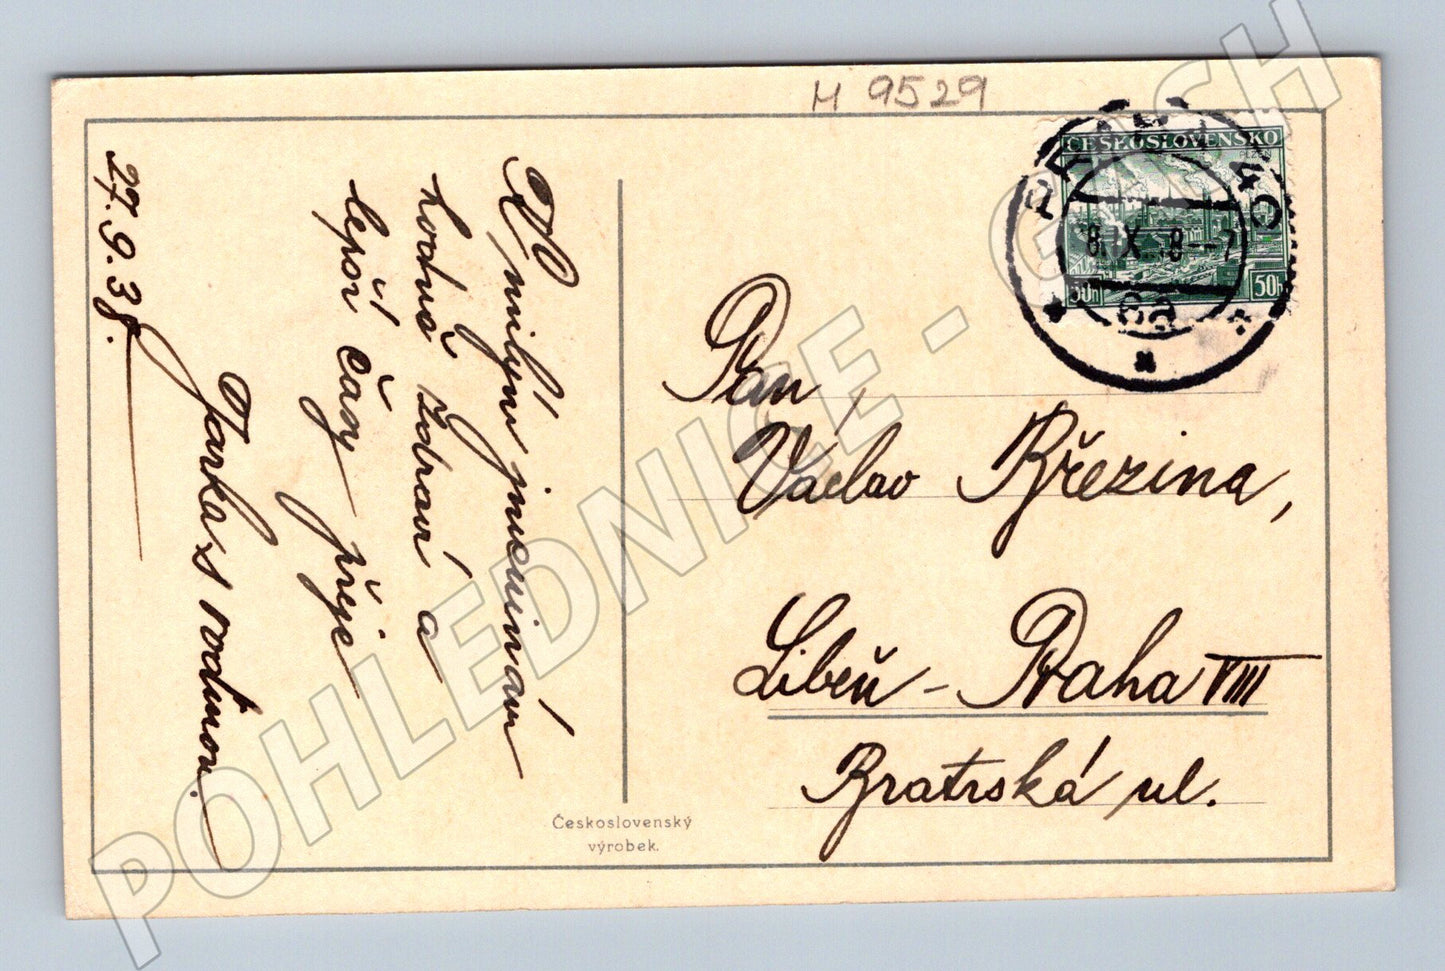 M 9529
ČESKOSLOVENSKO
PLZEŇ
50h
50h
PRAHA 40
8.IX. 8--7
6a
K milým jmeninám
hodně zdraví a
lepší časy přeje
Jarka s rodinou.
27.9.38.
Pan,
Václav Březina,
Libeň - Praha VIII
Bratrská ul.
Československý
výrobek.
POHLEDNICE - CASH